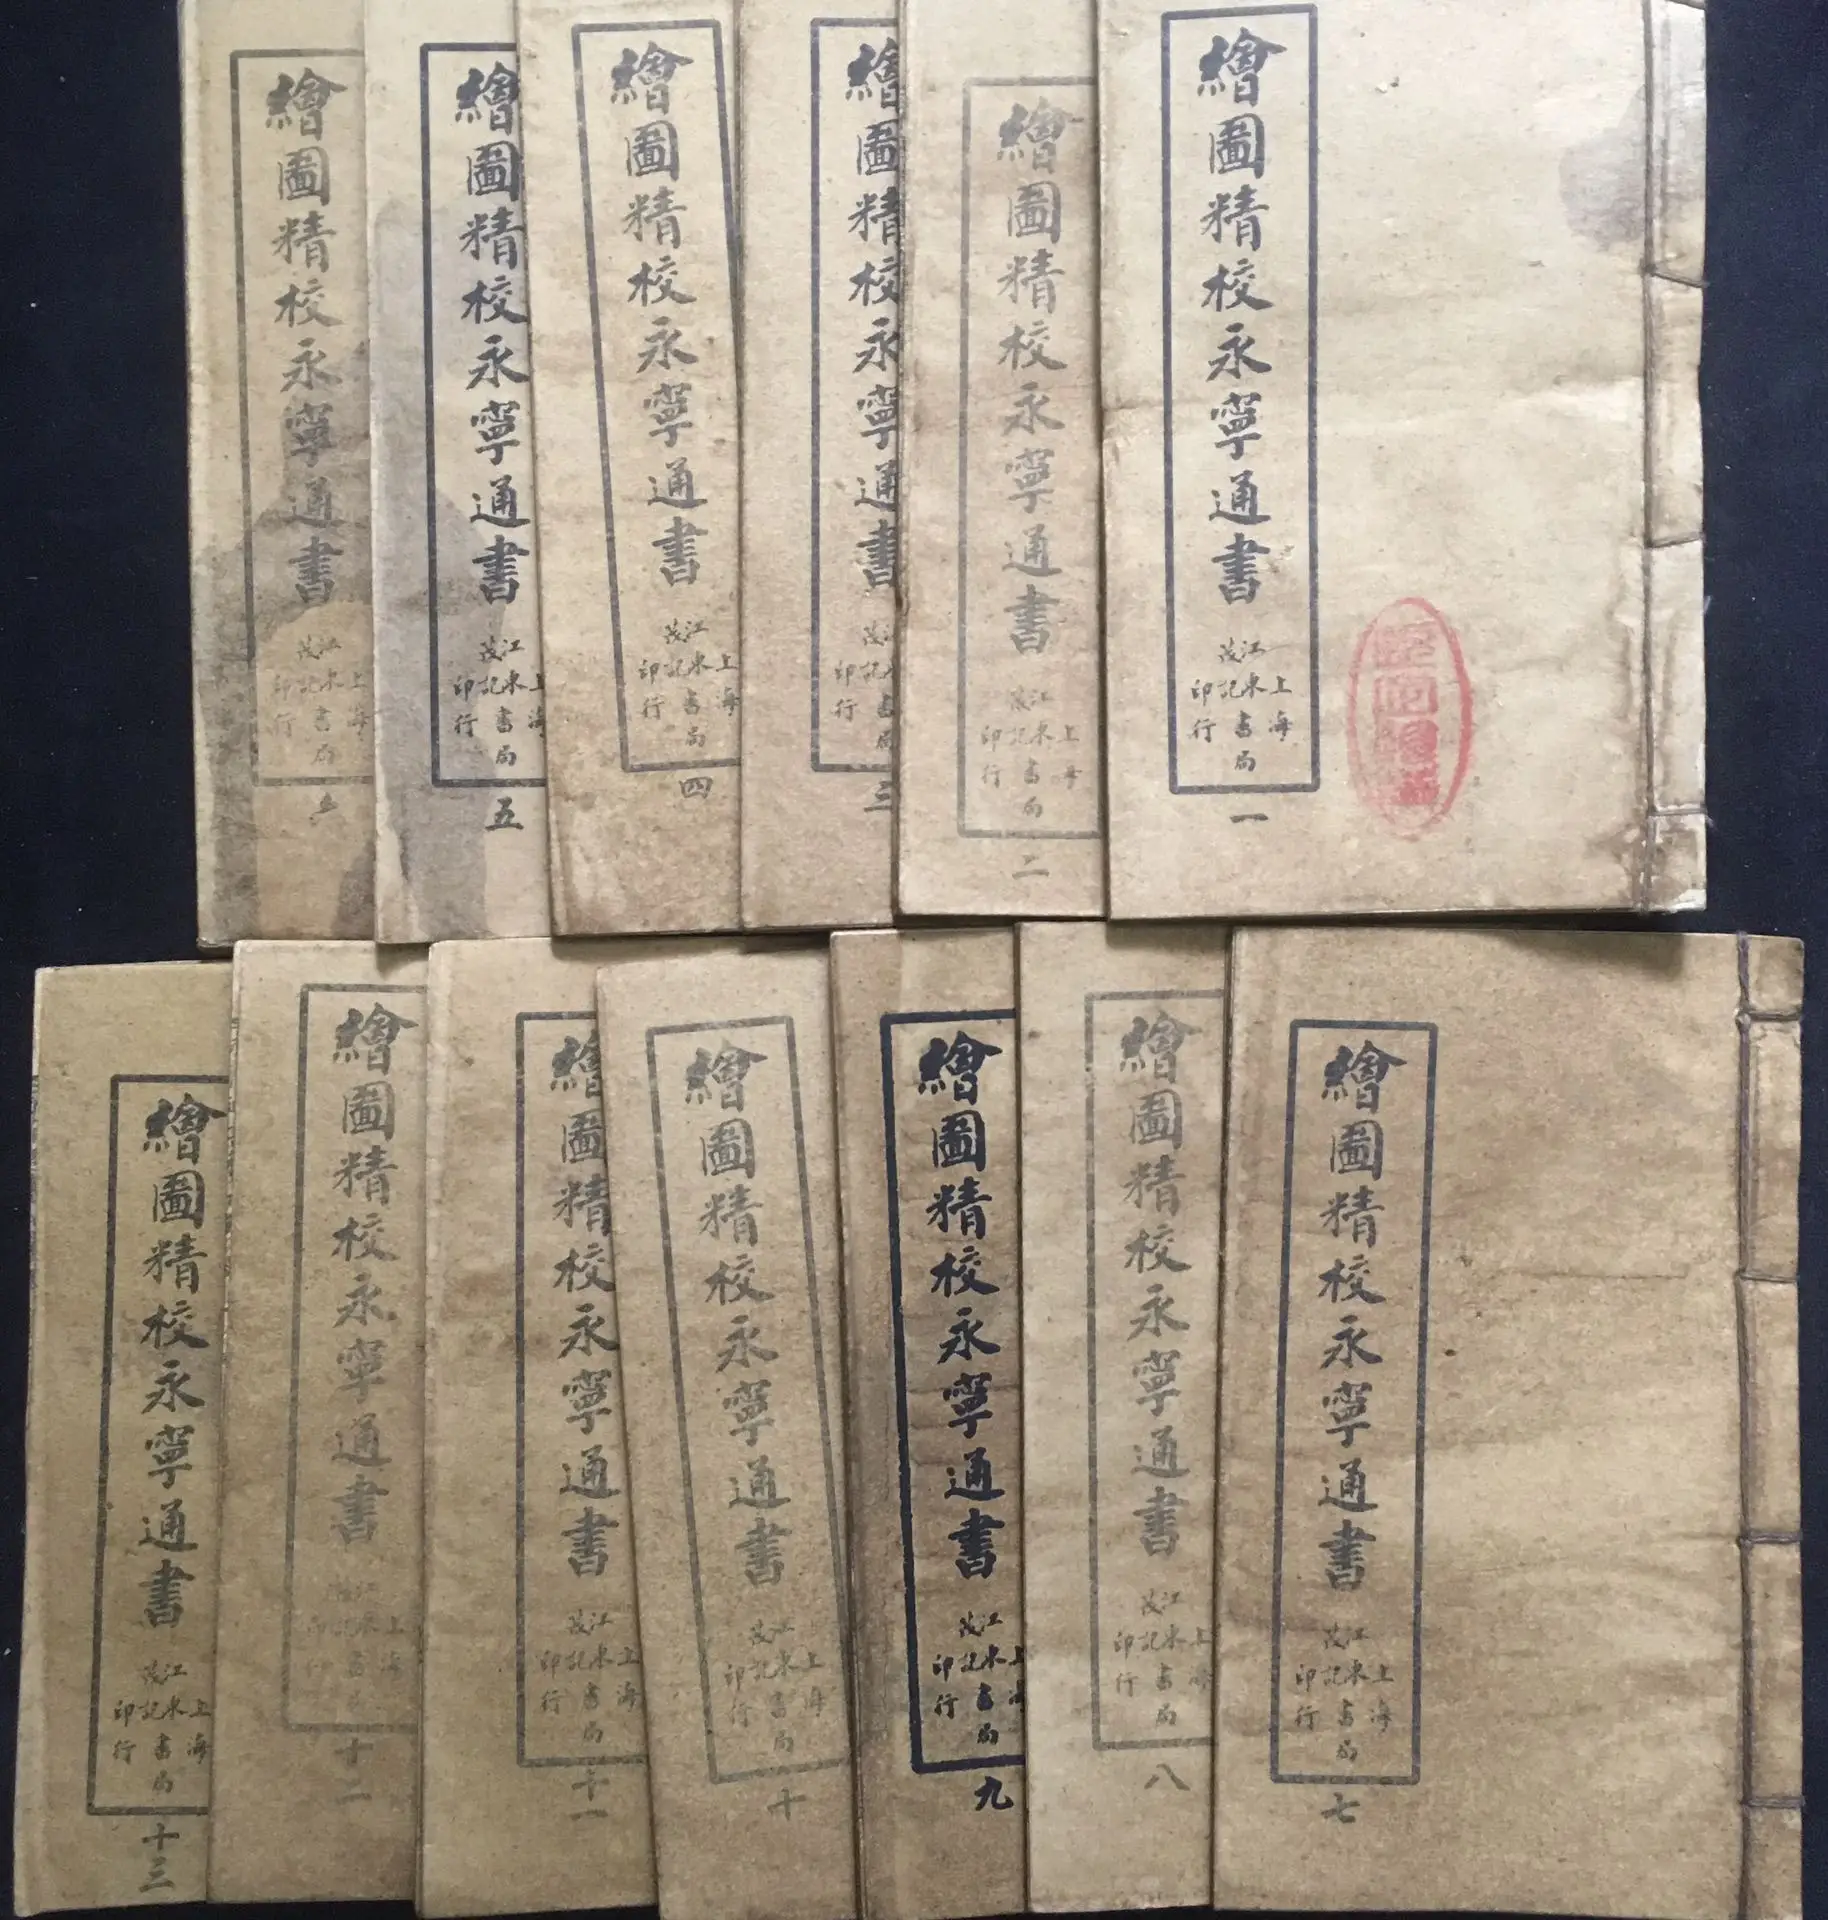 繪圖精校永寧通書
上海江東茂記書局印行
一
繪圖精校永寧通書
上海江東茂記書局印行
二
繪圖精校永寧通書
江東茂記書局印行
三
繪圖精校永寧通書
上海江東茂記書局印行
四
繪圖精校永寧通書
上海江東茂記書局印行
五
繪圖精校永寧通書
上海江東茂記書局印行
六
繪圖精校永寧通書
上海江東茂記書局印行
七
繪圖精校永寧通書
上海江東茂記書局印行
八
繪圖精校永寧通書
上海江東茂記書局印行
九
繪圖精校永寧通書
上海江東茂記書局印行
十
繪圖精校永寧通書
上海江東茂記書局印行
十一
繪圖精校永寧通書
上海江東茂記書局印行
十二
繪圖精校永寧通書
上海江東茂記書局印行
十三